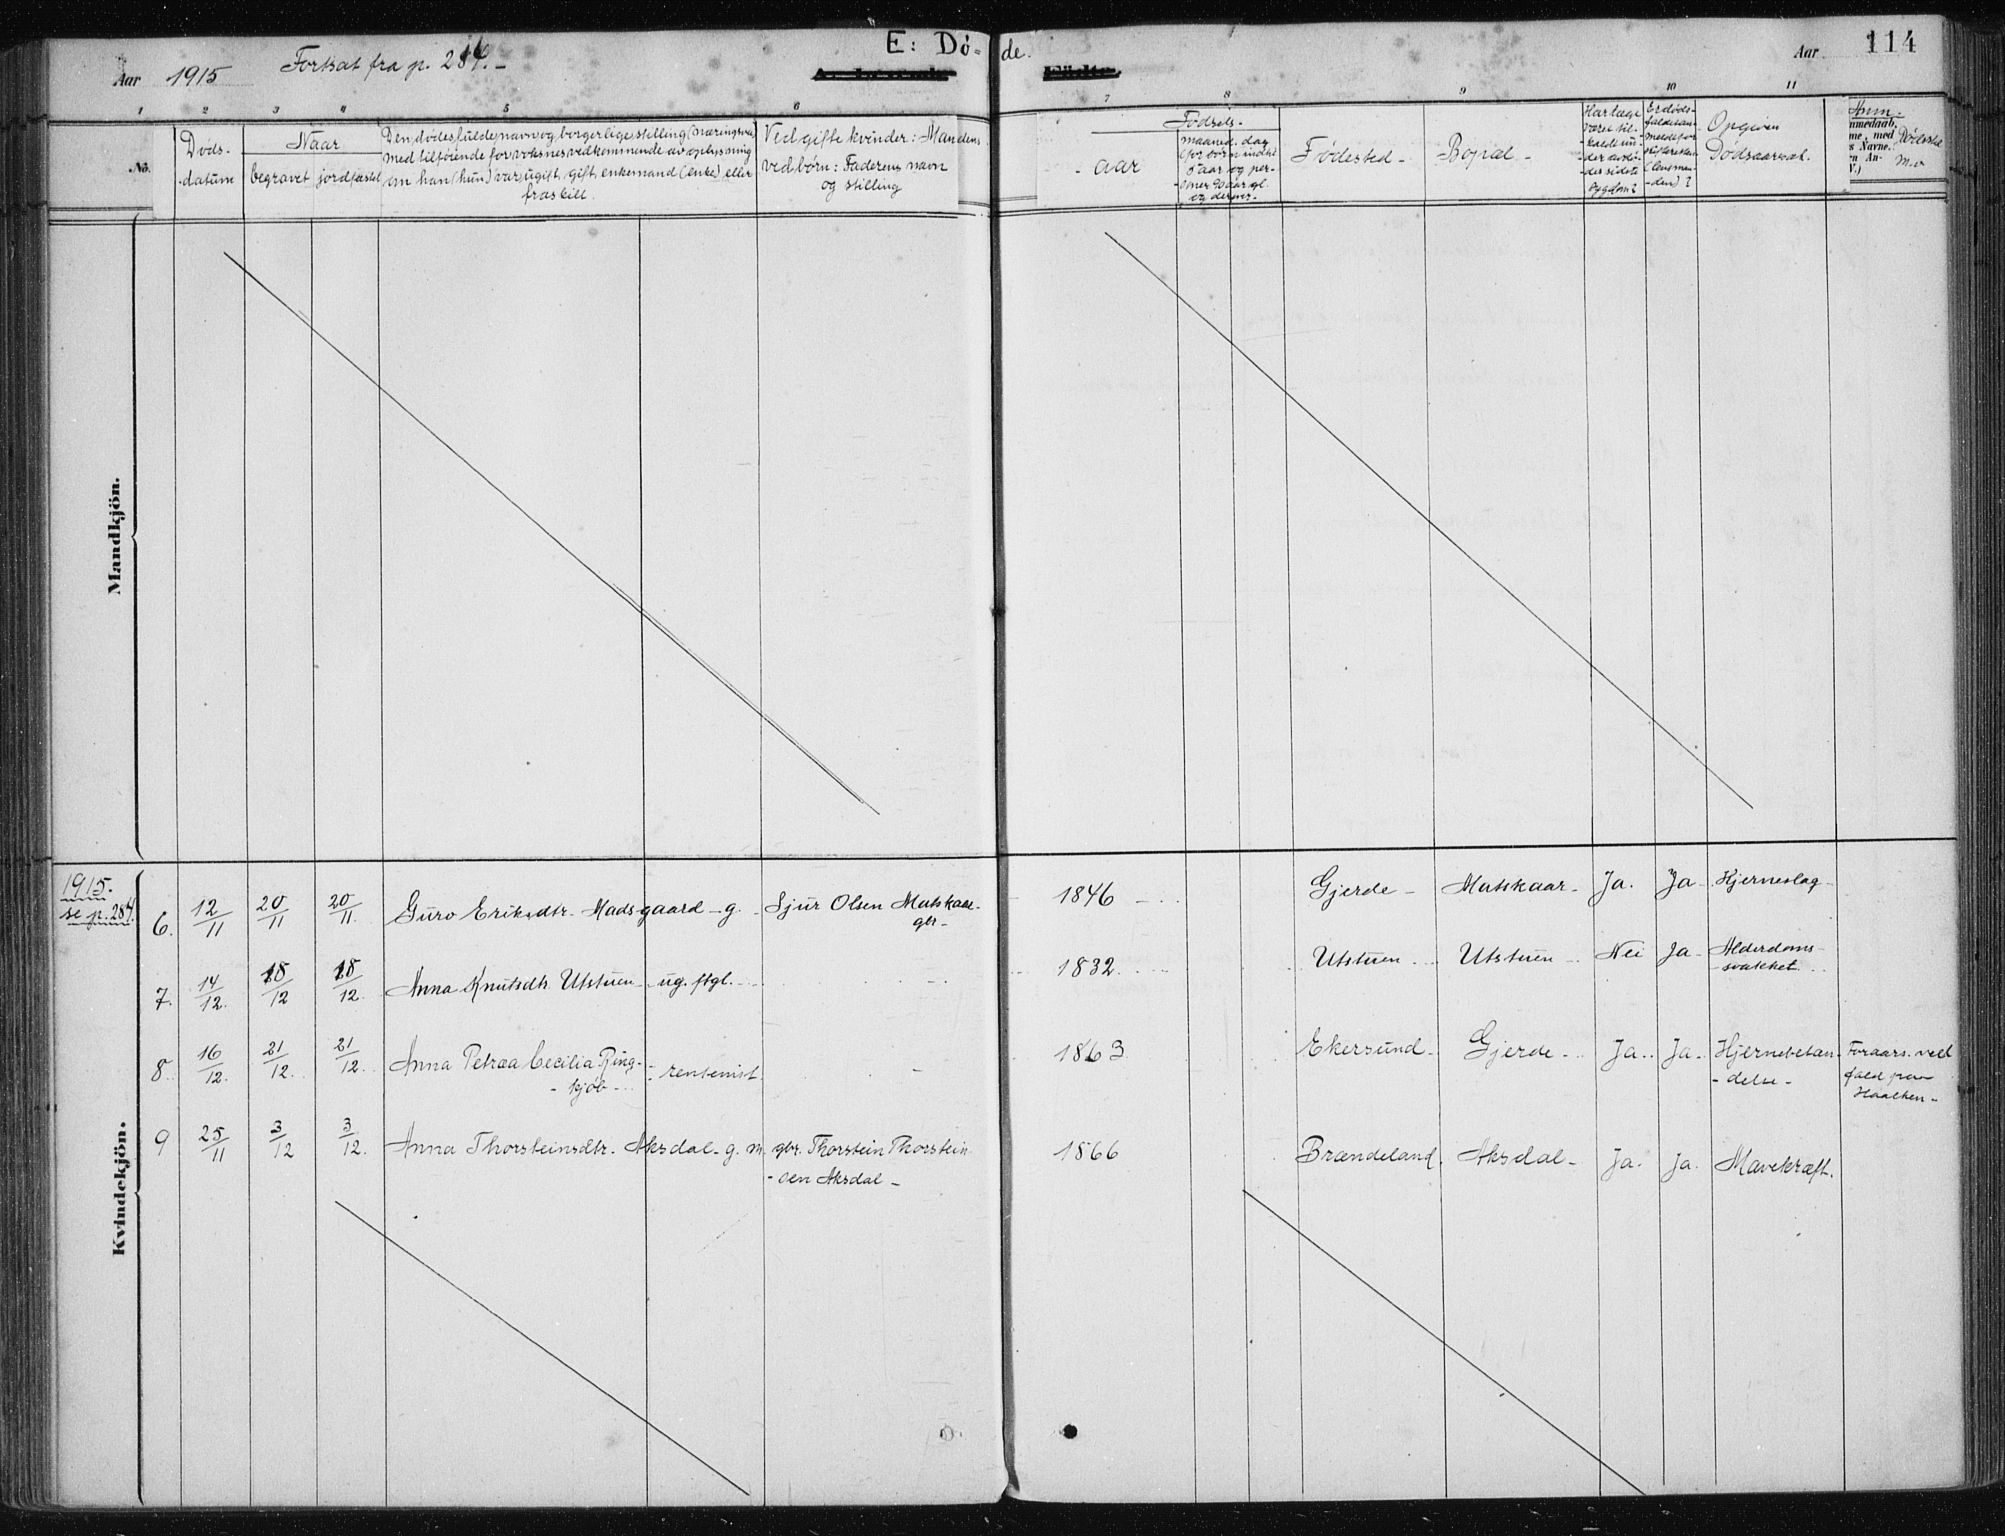 Aar 1915 Fortsat fra p. 284. E: Dö- de. Aar 114
1 2 3 4 5 6 7 8 9 10 11
No. Döds-datum Naar begravet jordfæstet
Den dödes fulde navn og borgerlige stilling (næringsvei)
med tilföiende for voksnes vedkommende av oplysning
om han (hun) var ugift, gift, enkemand (enke) eller
fraskilt.
Ved gifte kvinder: Mandens
ved börn: Faderens navn
og stilling
Födsels-
aar
maaned. dag
(for börn indtil
5 aar og per-
soner 90 aar gl.
og derover-
Födested - Bopæl -
Har læge
været til-
kaldt un-
der avdö-
des sidste
sygdom?
Er döds-
faldet an-
meldt for
skifteretten
(lensman-
den)?
Opgiven
Dödsaarsak.
Anm.
Dödssted
m.v.
Mandkjön.
1915.
se p. 284.
Kvindekjön.
6. 12/11 20/11 20/11 Guro Eriksdtr. Madsgaard - g. Sjur Olsen Matskaar gbr. - 1846 Gjerde - Matskaar - Ja. Ja - Hjerneslag -
7. 14/12. 18/12 18/12. Anna Knutsdtr. Utstuen - ug. ftgl. - 1832. Utstuen - Utstuen - Nei Ja - Alderdoms-
svakhet.
8. 16/12. 21/12. 21/12. Anna Petrea Cecilia Ring-
kjöb - rentenist. - 1863 Ekersund - Gjerde - Ja. Ja. Hjernebetæn-
delse - Foraars. ved
fald paa
Haalken -
9 25/11 3/12 3/12. Anna Thorsteinsdtr. Aksdal - g. m. gbr. Thorstein Thorstein-
sen Aksdal - 1866 Brændeland. Aksdal - Ja. Ja. Mavekræft.